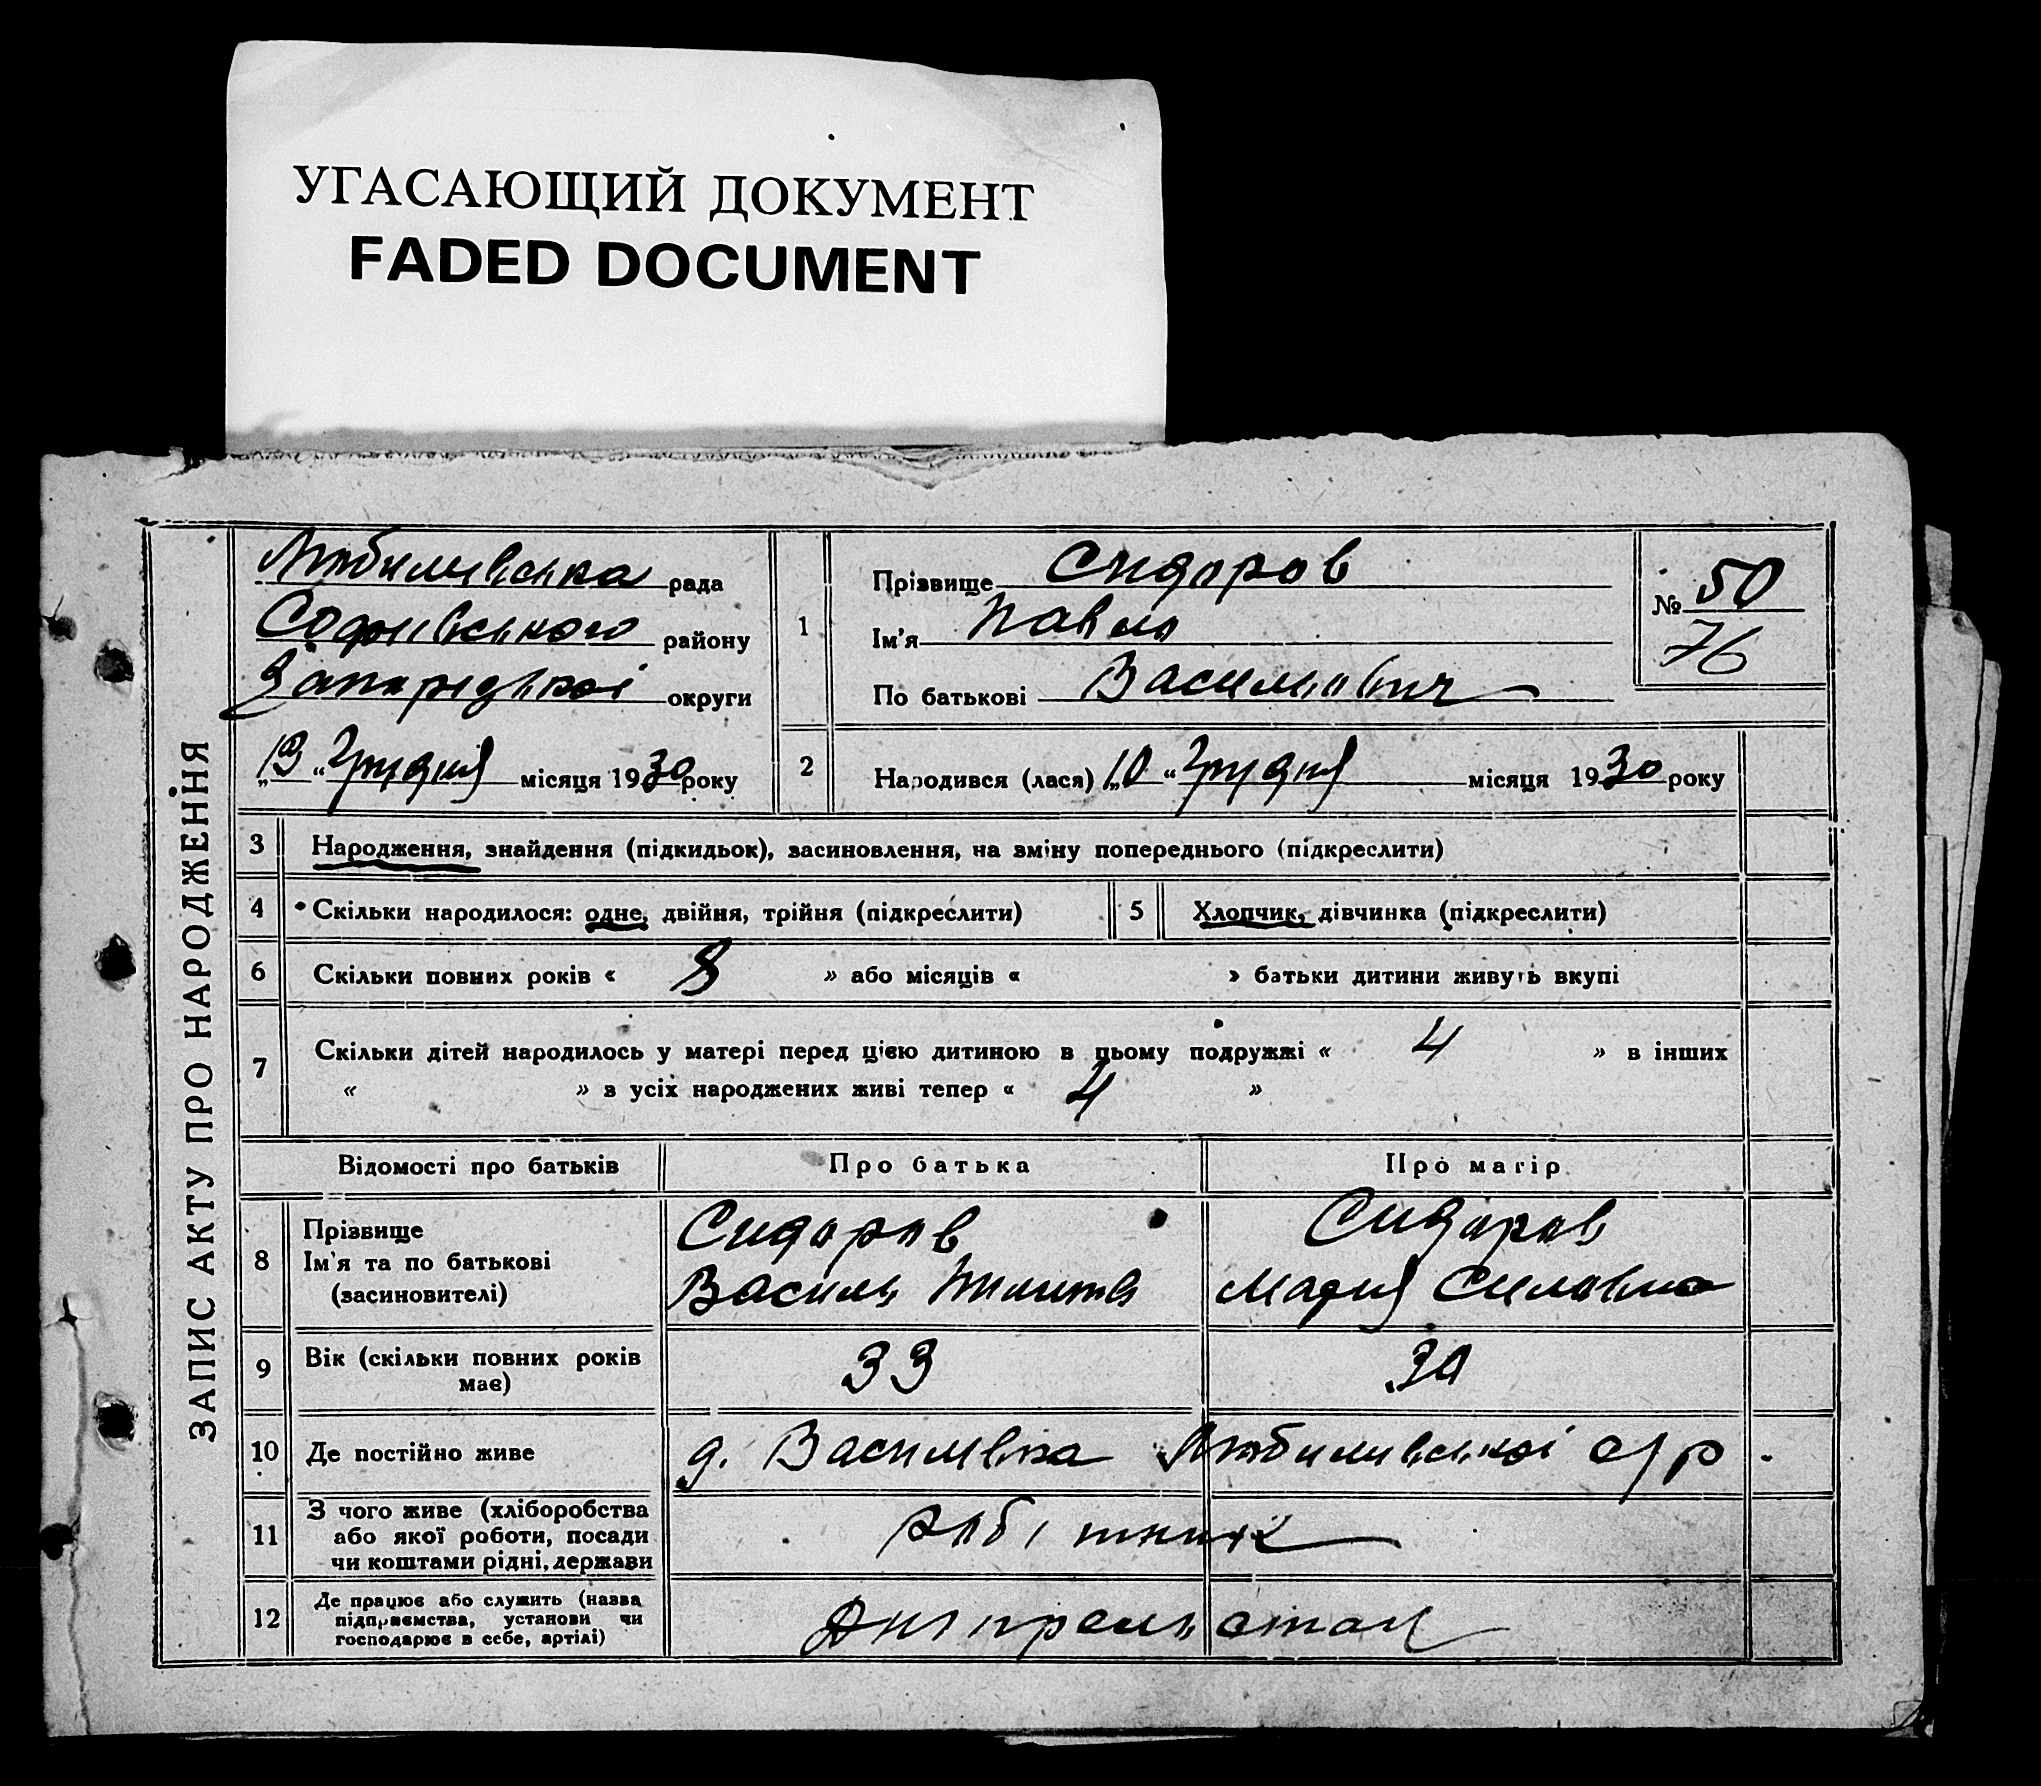 УГАСАЮЩИЙ ДОКУМЕНТ
FADED DOCUMENT
ЗАПИС АКТУ ПРО НАРОДЖЕННЯ
Любимивська рада
Софиівського району
Запорізькоі округи
„13“ Грудня місяця 1930 року
1
Прізвище Сидоров
Ім'я Павло
По батькові Васильович
№ 50
76
2
Народився (лася) „10“ Грудня місяця 1930 року
3 Народження, знайдення (підкидьок), засиновлення, на зміну попереднього (підкреслити)
4 Скільки народилося: одне, двійня, трійня (підкреслити)
5 Хлопчик, дівчинка (підкреслити)
6 Скільки повних років « 8 » або місяців « » батьки дитини живуть вкупі
7 Скільки дітей народилось у матері перед цією дитиною в цьому подружжі « 4 » в інших
« » з усіх народжених живі тепер « 4 »
Відомості про батьків Про батька Про матір
8 Прізвище
Ім'я та по батькові
(засиновителі)
Сидоров
Василь
Сидоров
Мария Силовна
9 Вік (скільки повних років
має)
33 30
10 Де постійно живе д. Василівка Любимивськоі с/р.
11 З чого живе (хліборобства
або якої роботи, посади
чи коштами рідні, держави
робітник
12 Де працює або служить (назва
підприємства, установи чи
господарює в себе, артілі)